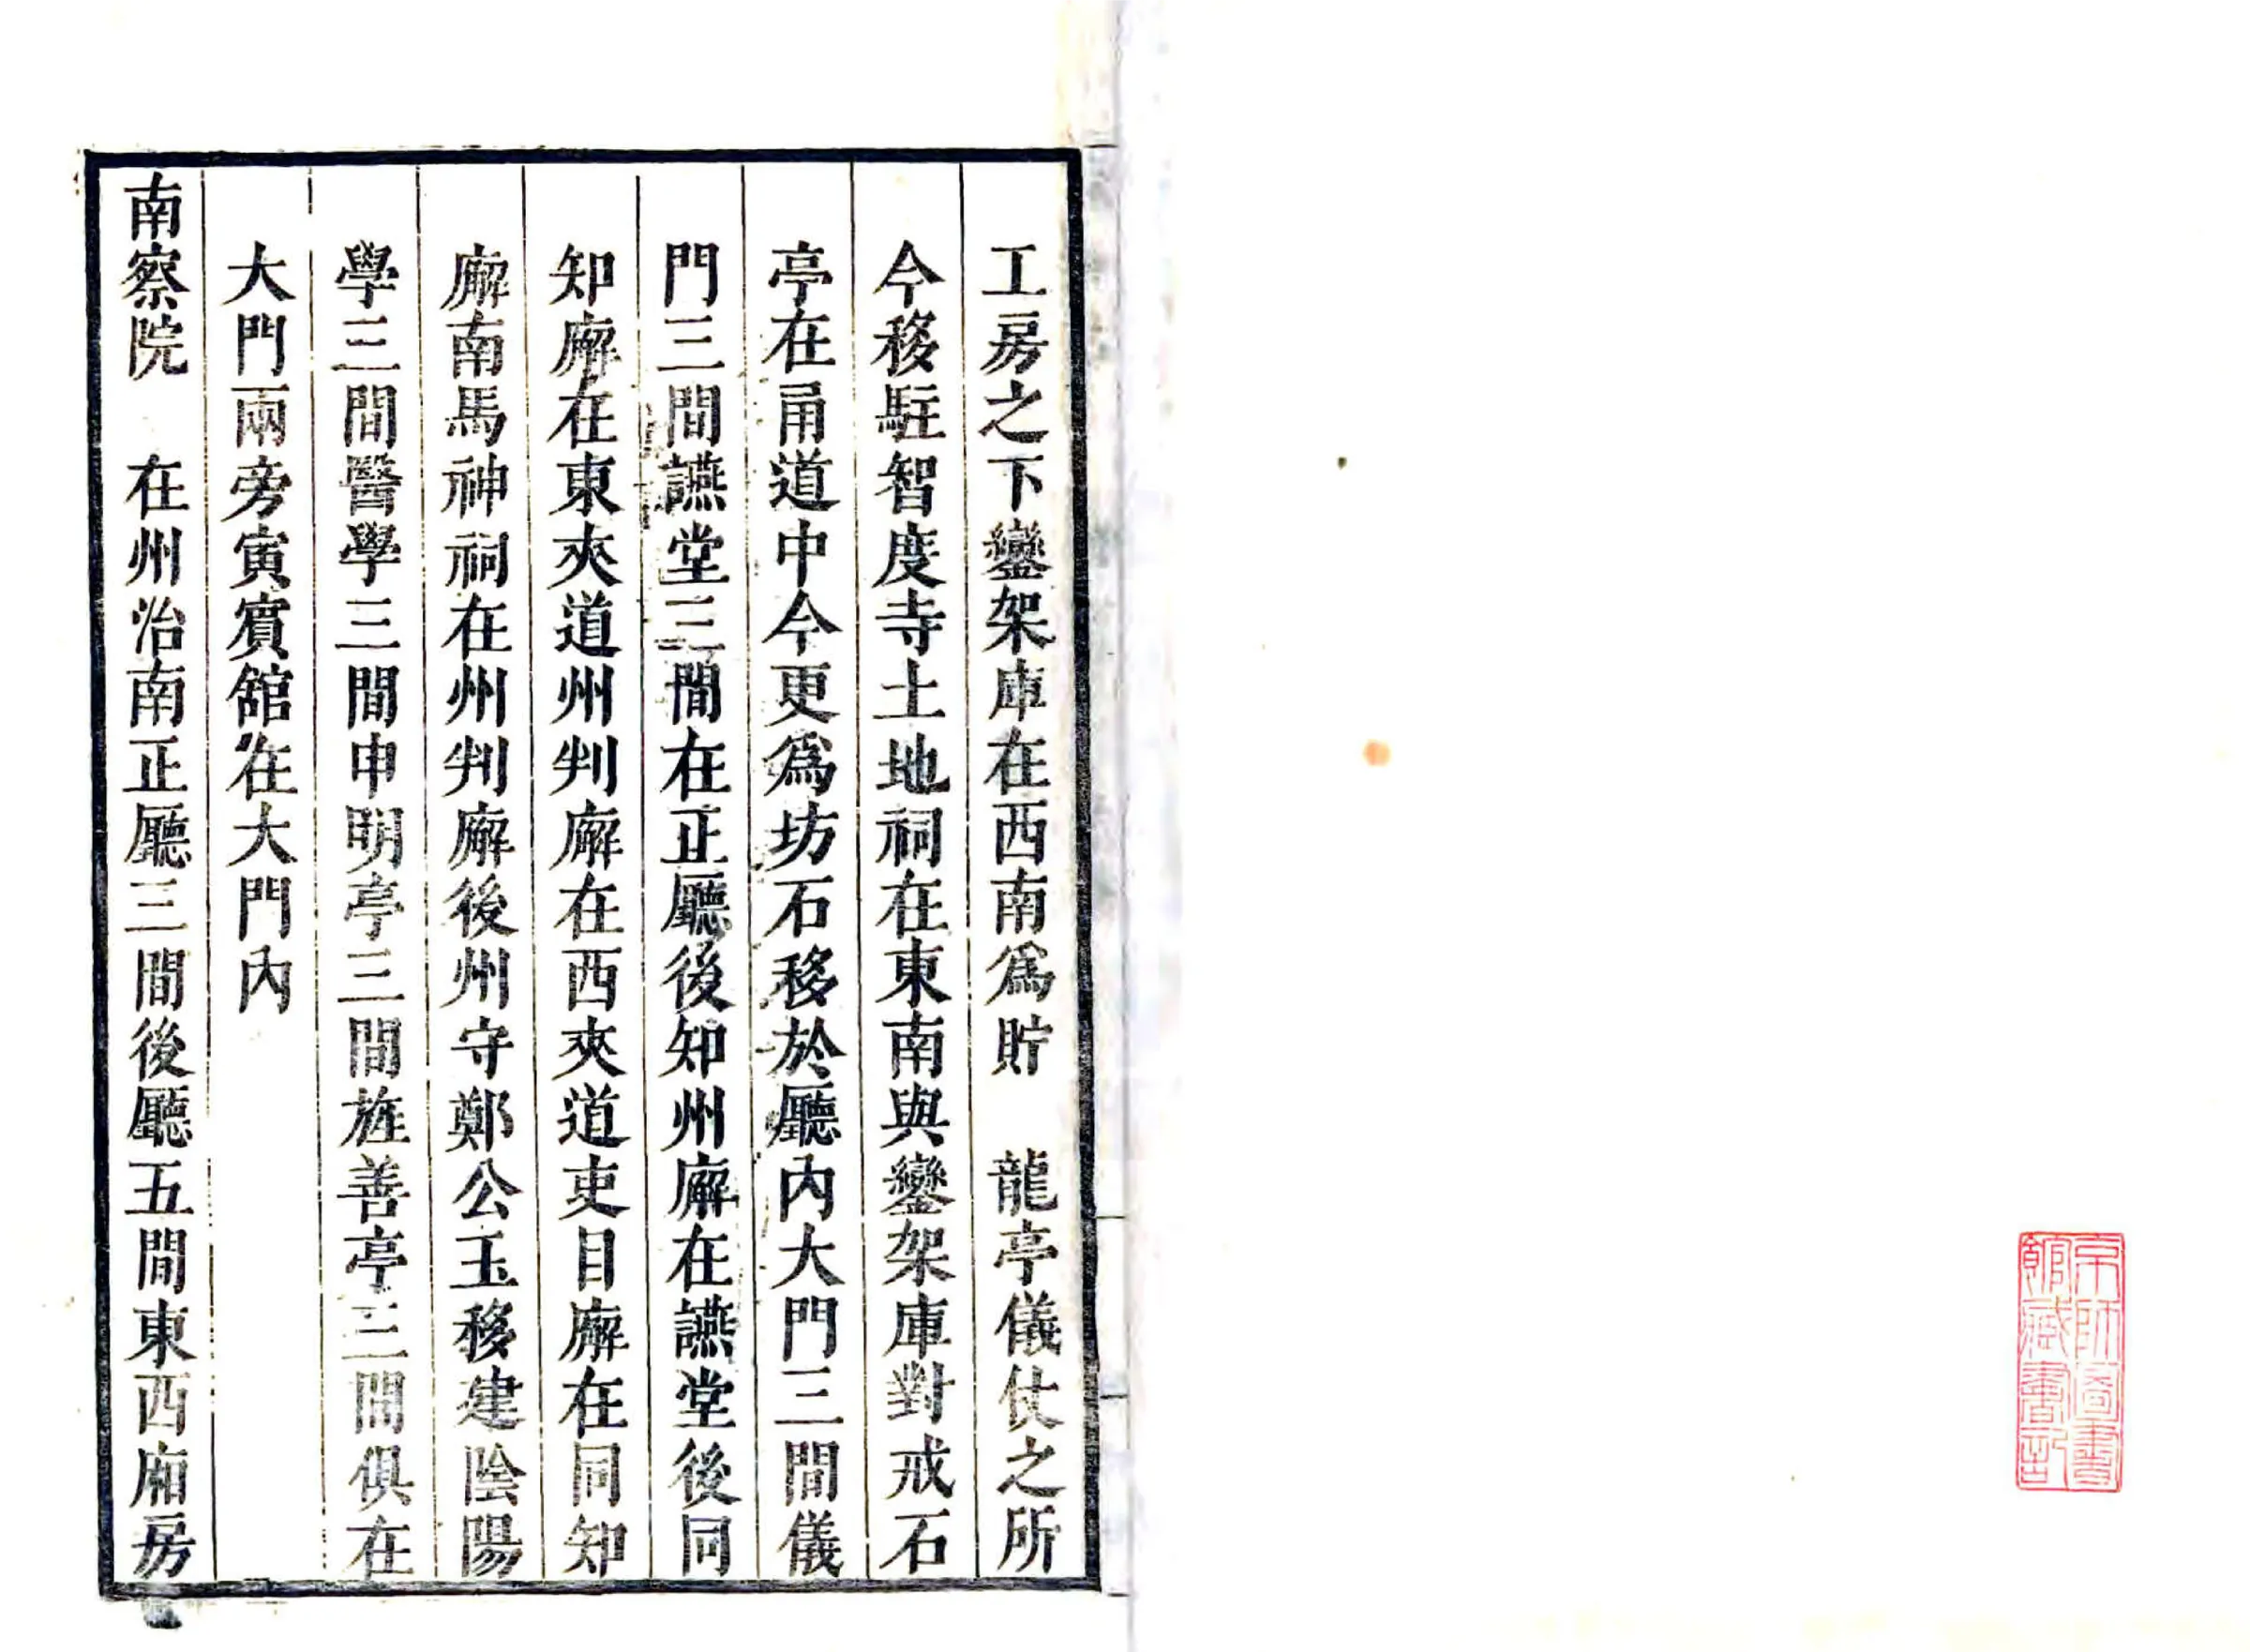 京師圖書
館藏書記
工房之下鑾架庫在西南爲貯　龍亭儀仗之所
今移駐智度寺土地祠在東南與鑾架庫對戒石
亭在甬道中今更爲坊石移於廳內大門三間儀
門三間讌堂三間在正廳後知州廨在讌堂後同
知廨在東夾道州判廨在西夾道吏目廨在同知
廨南馬神祠在州判廨後州守鄭公玉移建陰陽
學三間醫學三間申明亭三間旌善亭三間俱在
大門兩旁寅賓館在大門內
南察院　在州治南正廳三間後廳五間東西廂房